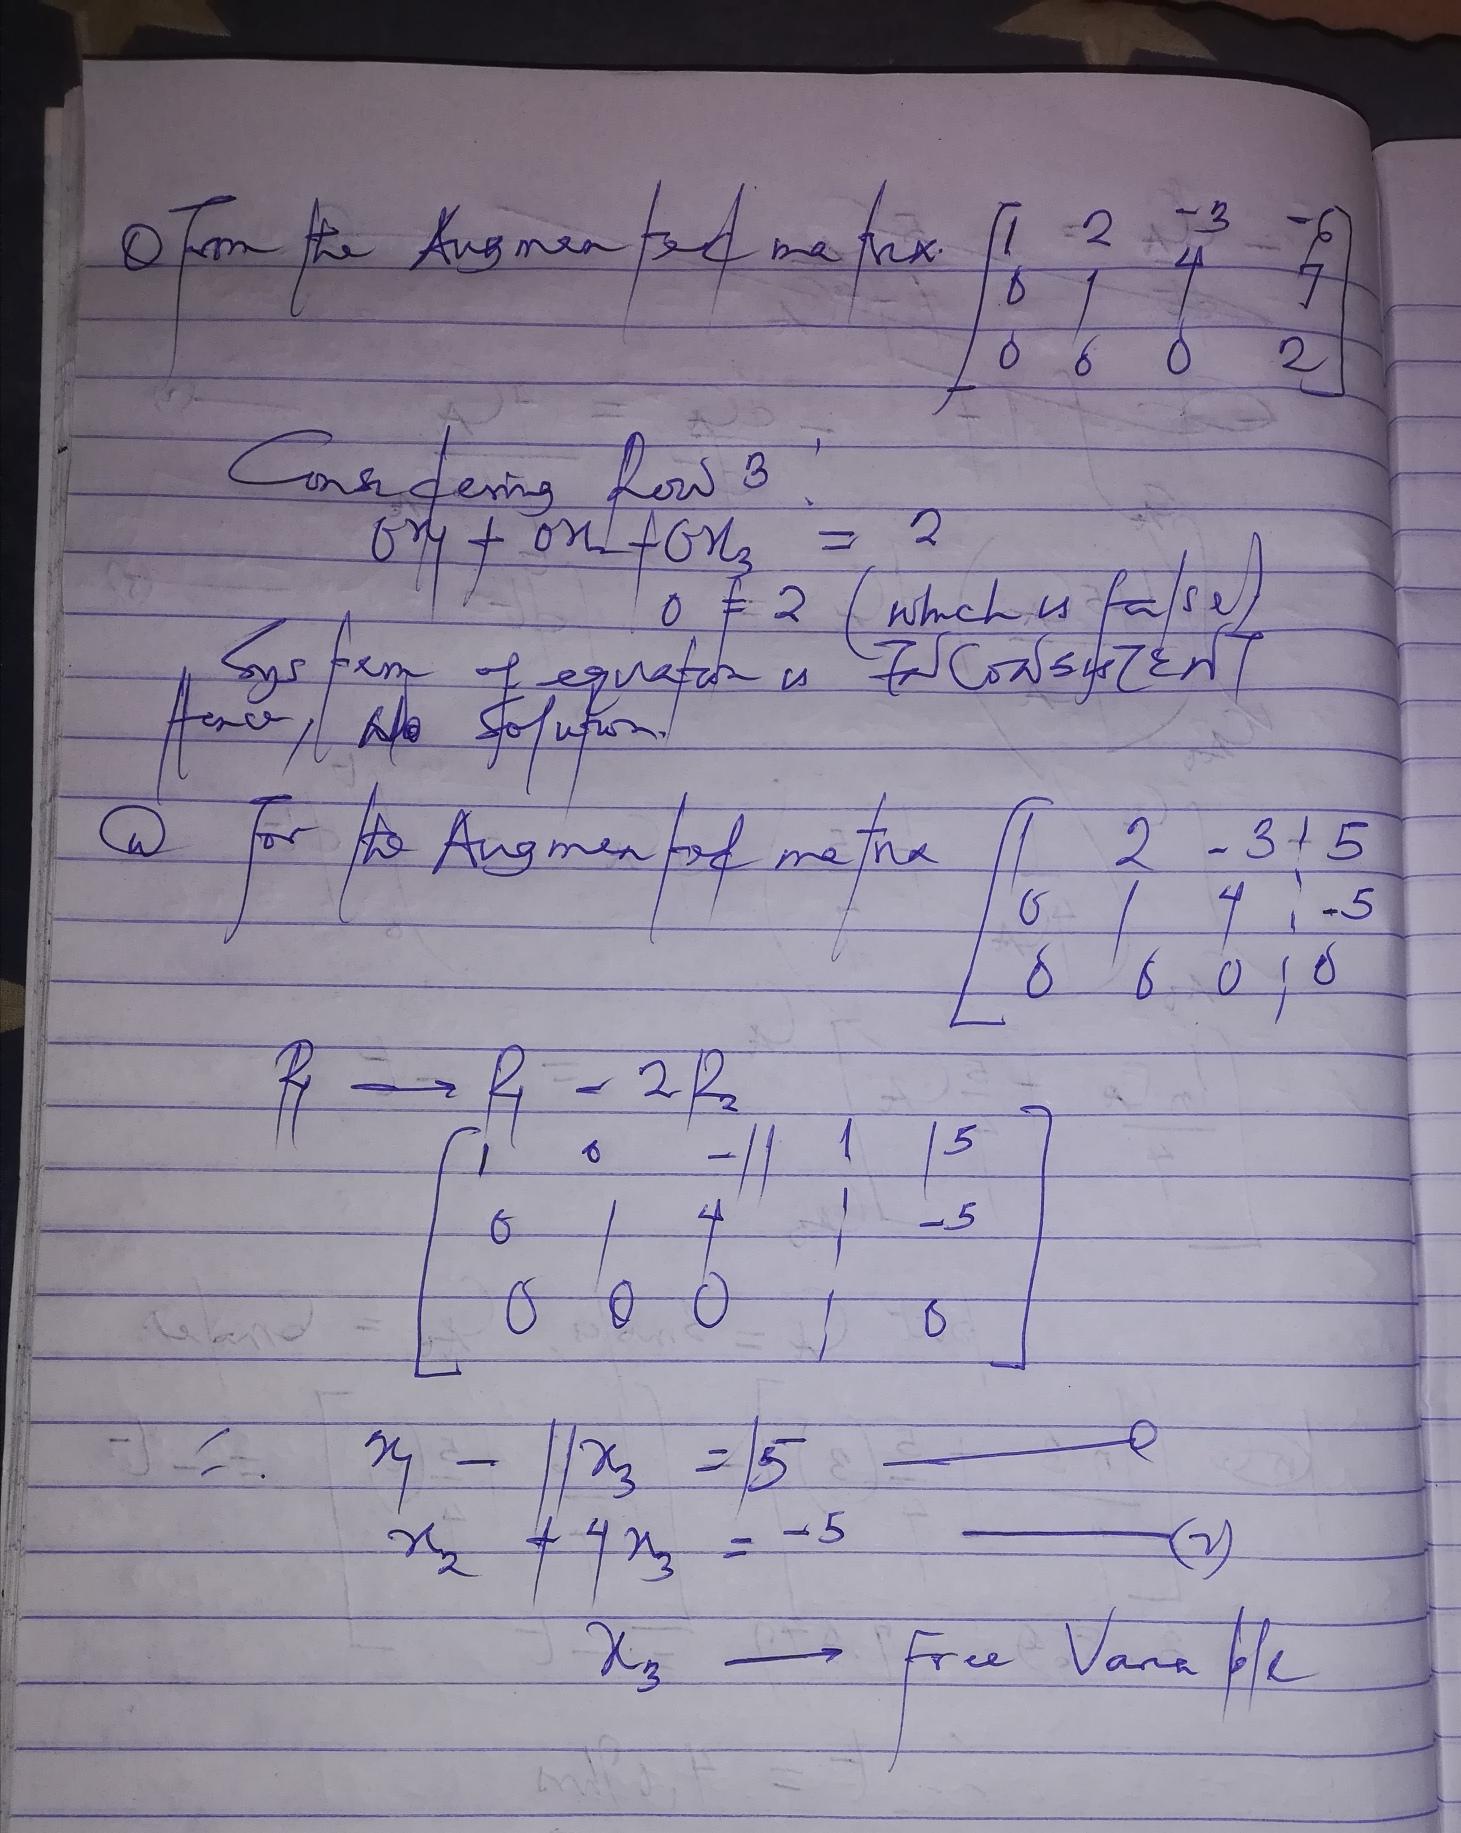 ① From the Augmented matrix. [1 2 -3 -6
0 1 4 7
0 0 0 2]
Considering Row 3:
0x₁ + 0x₂ + 0x₃ = 2
0 ≠ 2 (which is false)
System of equation is INCONSYSTENT
Hence, No Solution.
ⓘⓘ For the Augmented matrix [1 2 -3 | 5
0 1 4 | -5
0 0 0 | 0
R₁ → R₁ - 2R₂
[1 0 -11 | 15
0 1 4 | -5
0 0 0 | 0]
∴ x₁ - 11x₃ = 15 ——— ①
x₂ + 4x₃ = -5 ——— (2)
x₃ → Free Variable